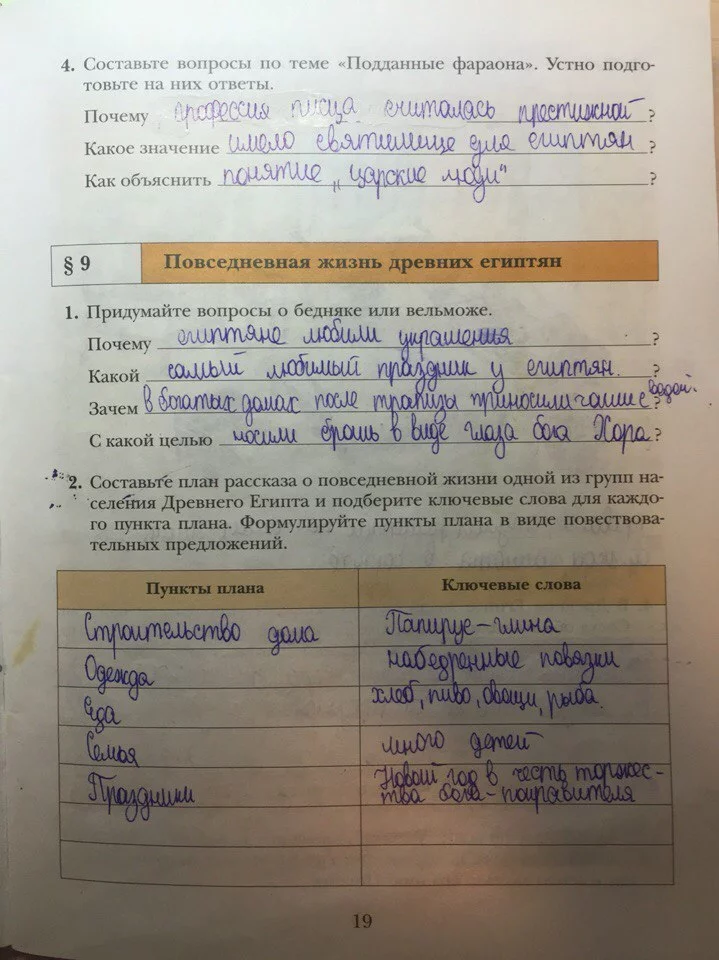 4. Составьте вопросы по теме «Подданные фараона». Устно подго-
товьте на них ответы.
Почему профессия писца считалась престижной?
Какое значение имело святилище для египтян?
Как объяснить понятие „царские люди"?
§ 9 Повседневная жизнь древних египтян
1. Придумайте вопросы о бедняке или вельможе.
Почему египтяне любили украшения?
Какой самый любимый праздник у египтян.?
Зачем в богатых домах после трапизы приносили чаши с водой.?
С какой целью носили брошь в виде глаза бога Хора?
2. Составьте план рассказа о повседневной жизни одной из групп на-
селения Древнего Египта и подберите ключевые слова для каждо-
го пункта плана. Формулируйте пункты плана в виде повествова-
тельных предложений.
Пункты плана Ключевые слова
Строительство дома Папирус-глина
Одежда набедренные повязки
Еда хлеб, пиво, овощи, рыба.
Семья много детей
Праздники Новый год в честь торжес-
тва бога-
19